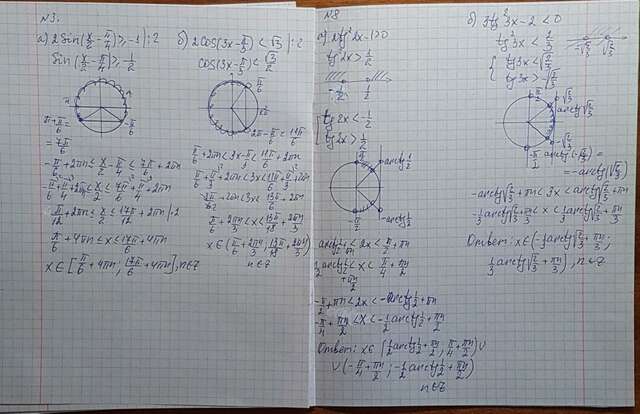 №3.
а) 2sin(x/2 - π/4) ≥ -1 | :2
sin(x/2 - π/4) ≥ -1/2
π + π/6 =
= 7π/6
-π/6
-π/6 + 2πn ≤ x/2 - π/4 ≤ 7π/6 + 2πn
-π/6 + π/4 + 2πn ≤ x/2 ≤ 7π/6 + π/4 + 2πn
π/12 + 2πn ≤ x/2 ≤ 17π/12 + 2πn | ·2
π/6 + 4πn ≤ x ≤ 17π/6 + 4πn
x ∈ [π/6 + 4πn; 17π/6 + 4πn], n∈Z
б) 2cos(3x - π/3) < √3 | :2
cos(3x - π/3) < √3/2
π/6
2π - π/6 = 11π/6
π/6 + 2πn < 3x - π/3 < 11π/6 + 2πn
π/6 + π/3 + 2πn < 3x < 11π/6 + π/3 + 2πn
+ 2πn < 3x < 13π/6 + 2πn
π/6 + 2πn/3 < x < 13π/18 + 2πn/3
x ∈ (π/6 + 2πn/3; 13π/18 + 2πn/3)
n∈Z
№8
tg2x > 1/2
-1/2 1/2
tg2x < -1/2
tg2x > 1/2
π/2
arctg 1/2
-arctg 1/2
-π/2
arctg 1/2 + πn < 2x < π/2 + πn
1/2 arctg 1/2 + πn/2 < x < π/4 + πn/2
-π/2 + πn < 2x < -arctg 1/2 + πn
-π/4 + πn/2 < x < -1/2 arctg 1/2 + πn/2
Ответ: x ∈ (1/2 arctg 1/2 + πn/2; π/4 + πn/2) ∪
∪ (-π/4 + πn/2; -1/2 arctg 1/2 + πn/2)
n∈Z
б) 3tg²3x - 2 < 0
tg²3x < 2/3
-√2/3 √2/3
tg3x < √2/3
tg3x > -√2/3
π/2
√2/3
arctg √2/3
-√2/3
-π/2
arctg(-√2/3) =
= -arctg(√2/3)
-arctg √2/3 + πn < 3x < arctg √2/3 + πn
-1/3 arctg √2/3 + πn/3 < x < 1/3 arctg √2/3 + πn/3
Ответ: x ∈ (-1/3 arctg √2/3 + πn/3;
1/3 arctg √2/3 + πn/3), n∈Z